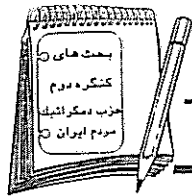 بحث های
کنگره دوم
حزب دمکراتیک
مردم ایران